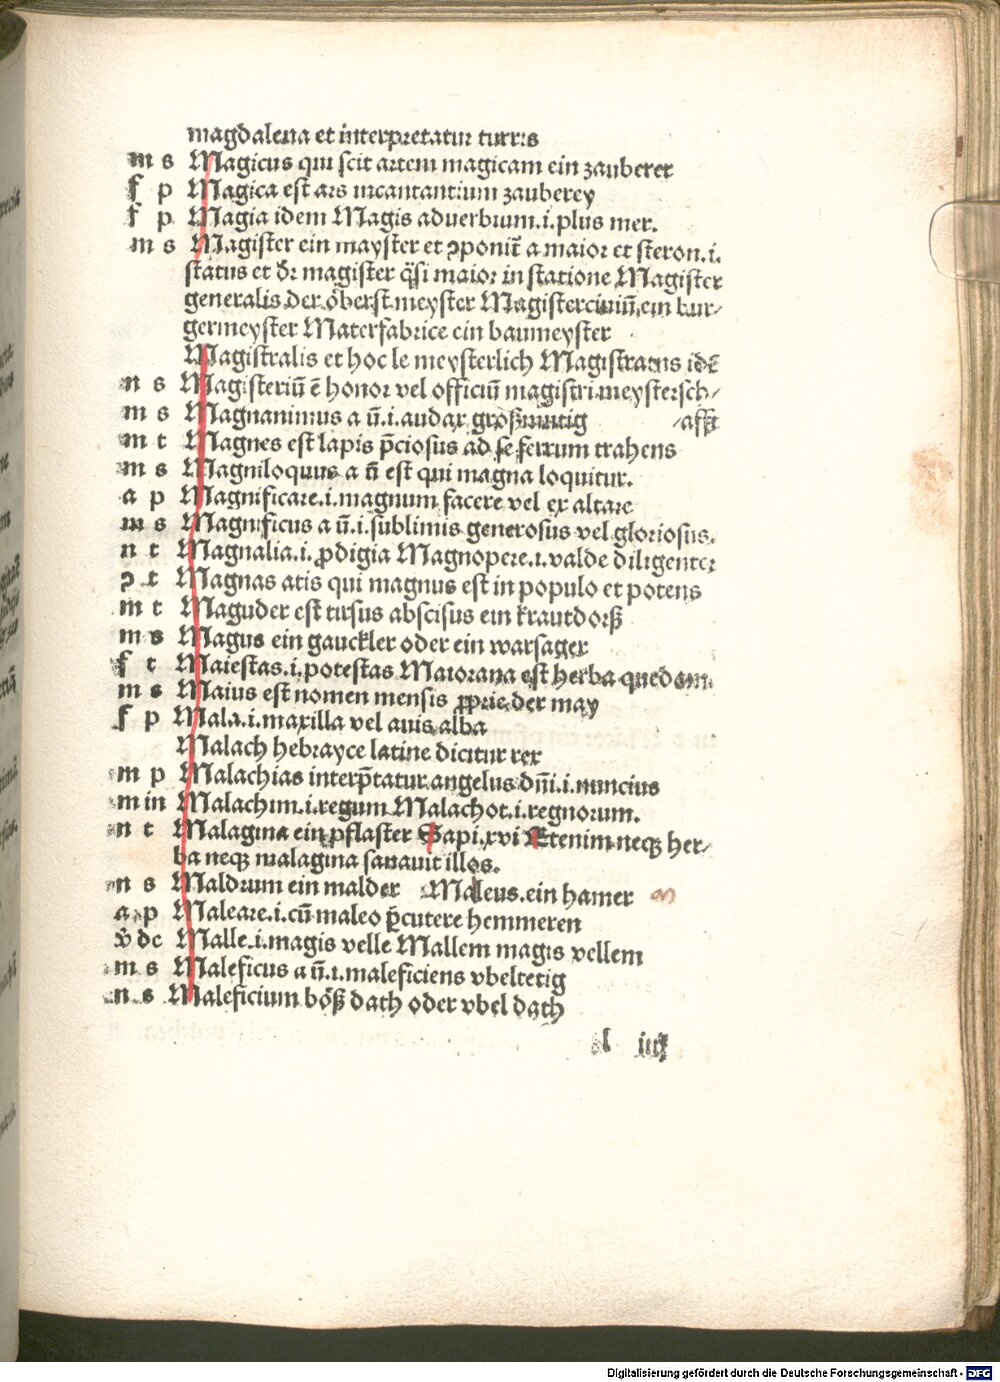 magdalena et interpretatur turris
m s Magicus qui scit artem magicam ein zauberer
f p Magica est ars incantantium zauberey
f p Magia idem Magis aduerbium.i.plus mer.
m s Magister ein mayster et ꝯponit̄ a maior et steron.i.
status et dr̄ magister q̄si maior in statione Magister
generalis der öberst meyster Magistercuiuū ein bur⸗
germeyster Materfabrice ein baumeyster
Magistralis et hoc le meysterlich Magistratus idē
n s Magisteriū ē honor vel officiū magistri meystersch⸗
m s Magnanimus a ū.i.audax großmutig ⸗afft
m t Magnes est lapis p̄ciosus ad se ferrum trahens
m s Magniloquus a ū est qui magna loquitur.
a p Magnificare.i.magnum facere vel ex altare
m s Magnificus a ū.i.sublimis generosus vel gloriosus.
n t Magnalia.i.ꝓdigia Magnopere.i.valde diligenter
ꝯ t Magnas atis qui magnus est in populo et potens
m t Maguder est tirsus abscisus ein krautdorß
m s Magus ein gauckler oder ein warsager
f t Maiestas.i.potestas Maiorana est herba quedam.
m s Maius est nomen mensis ꝓprie der may
f p Mala.i.maxilla vel auis alba
Malach hebrayce latine dicitur rex
m p Malachias interp̄tatur angelus dn̄i.i.nuncius
m in Malachim.i.regum Malachot.i.regnorum.
n t Malagma ein pflaster Sapi.xvi Etenim neqꝫ her⸗
ba neqꝫ malagma sanauit illos.
n s Maldrum ein malder Maleus.ein hamer
a p Maleare.i.cū maleo p̄cutere hemmeren
v̊ dc Malle.i.magis velle Mallem magis vellem
m s Maleficus a ū.i.maleficiens vbeltetig
n s Maleficium böß dath oder vbel dath
l iiij
Digitalisierung gefördert durch die Deutsche Forschungsgemeinschaft - DFG